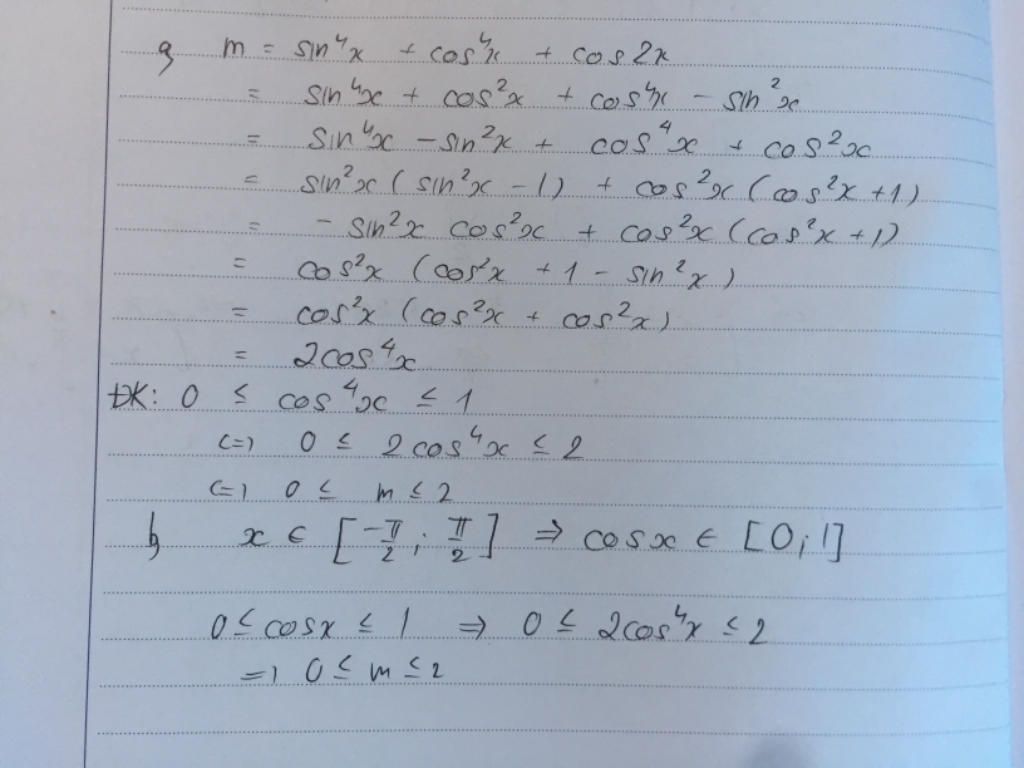 a, m = sin⁴x + cos⁴x + cos2x
= sin⁴x + cos²x + cos⁴x − sin²x
= sin⁴x − sin²x + cos⁴x + cos²x
= sin²x (sin²x − 1) + cos²x (cos²x + 1)
= − sin²x cos²x + cos²x (cos²x + 1)
= cos²x (cos²x + 1 − sin²x)
= cos²x (cos²x + cos²x)
= 2cos⁴x
ĐK: 0 ≤ cos⁴x ≤ 1
(=) 0 ≤ 2cos⁴x ≤ 2
(=) 0 ≤ m ≤ 2
b, x ∈ [-π/2; π/2] ⇒ cosx ∈ [0; 1]
0 ≤ cosx ≤ 1 ⇒ 0 ≤ 2cos⁴x ≤ 2
=) 0 ≤ m ≤ 2